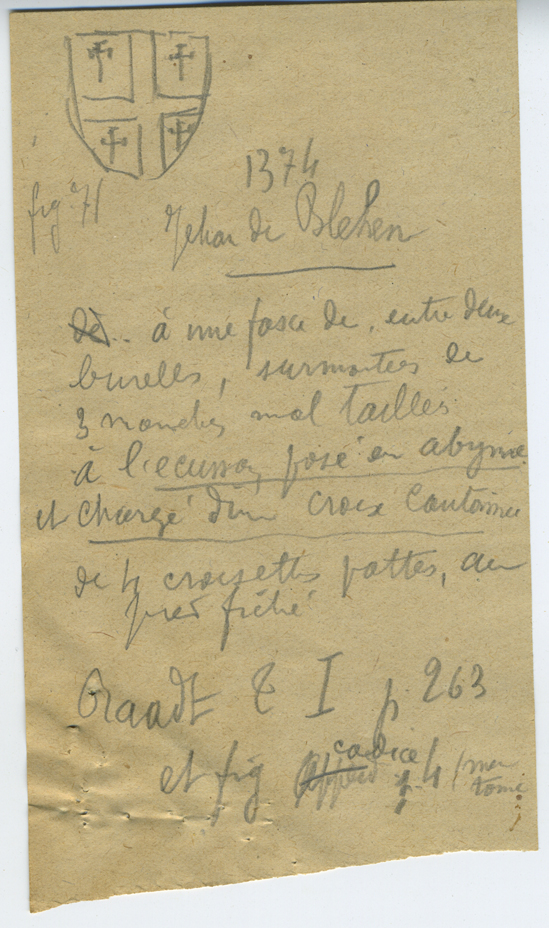 1374
fig 71
Jehan de Blehen
de .. à une fasce de, entre deux
burelles, surmontées de
3 manches mal taillés
à l'ecusson, posé en abyme
et chargé d'un croix cantonnée
de 4 croisettes pattes, au
pied fiché
Raadt t I p 263
et fig p. 4
tome